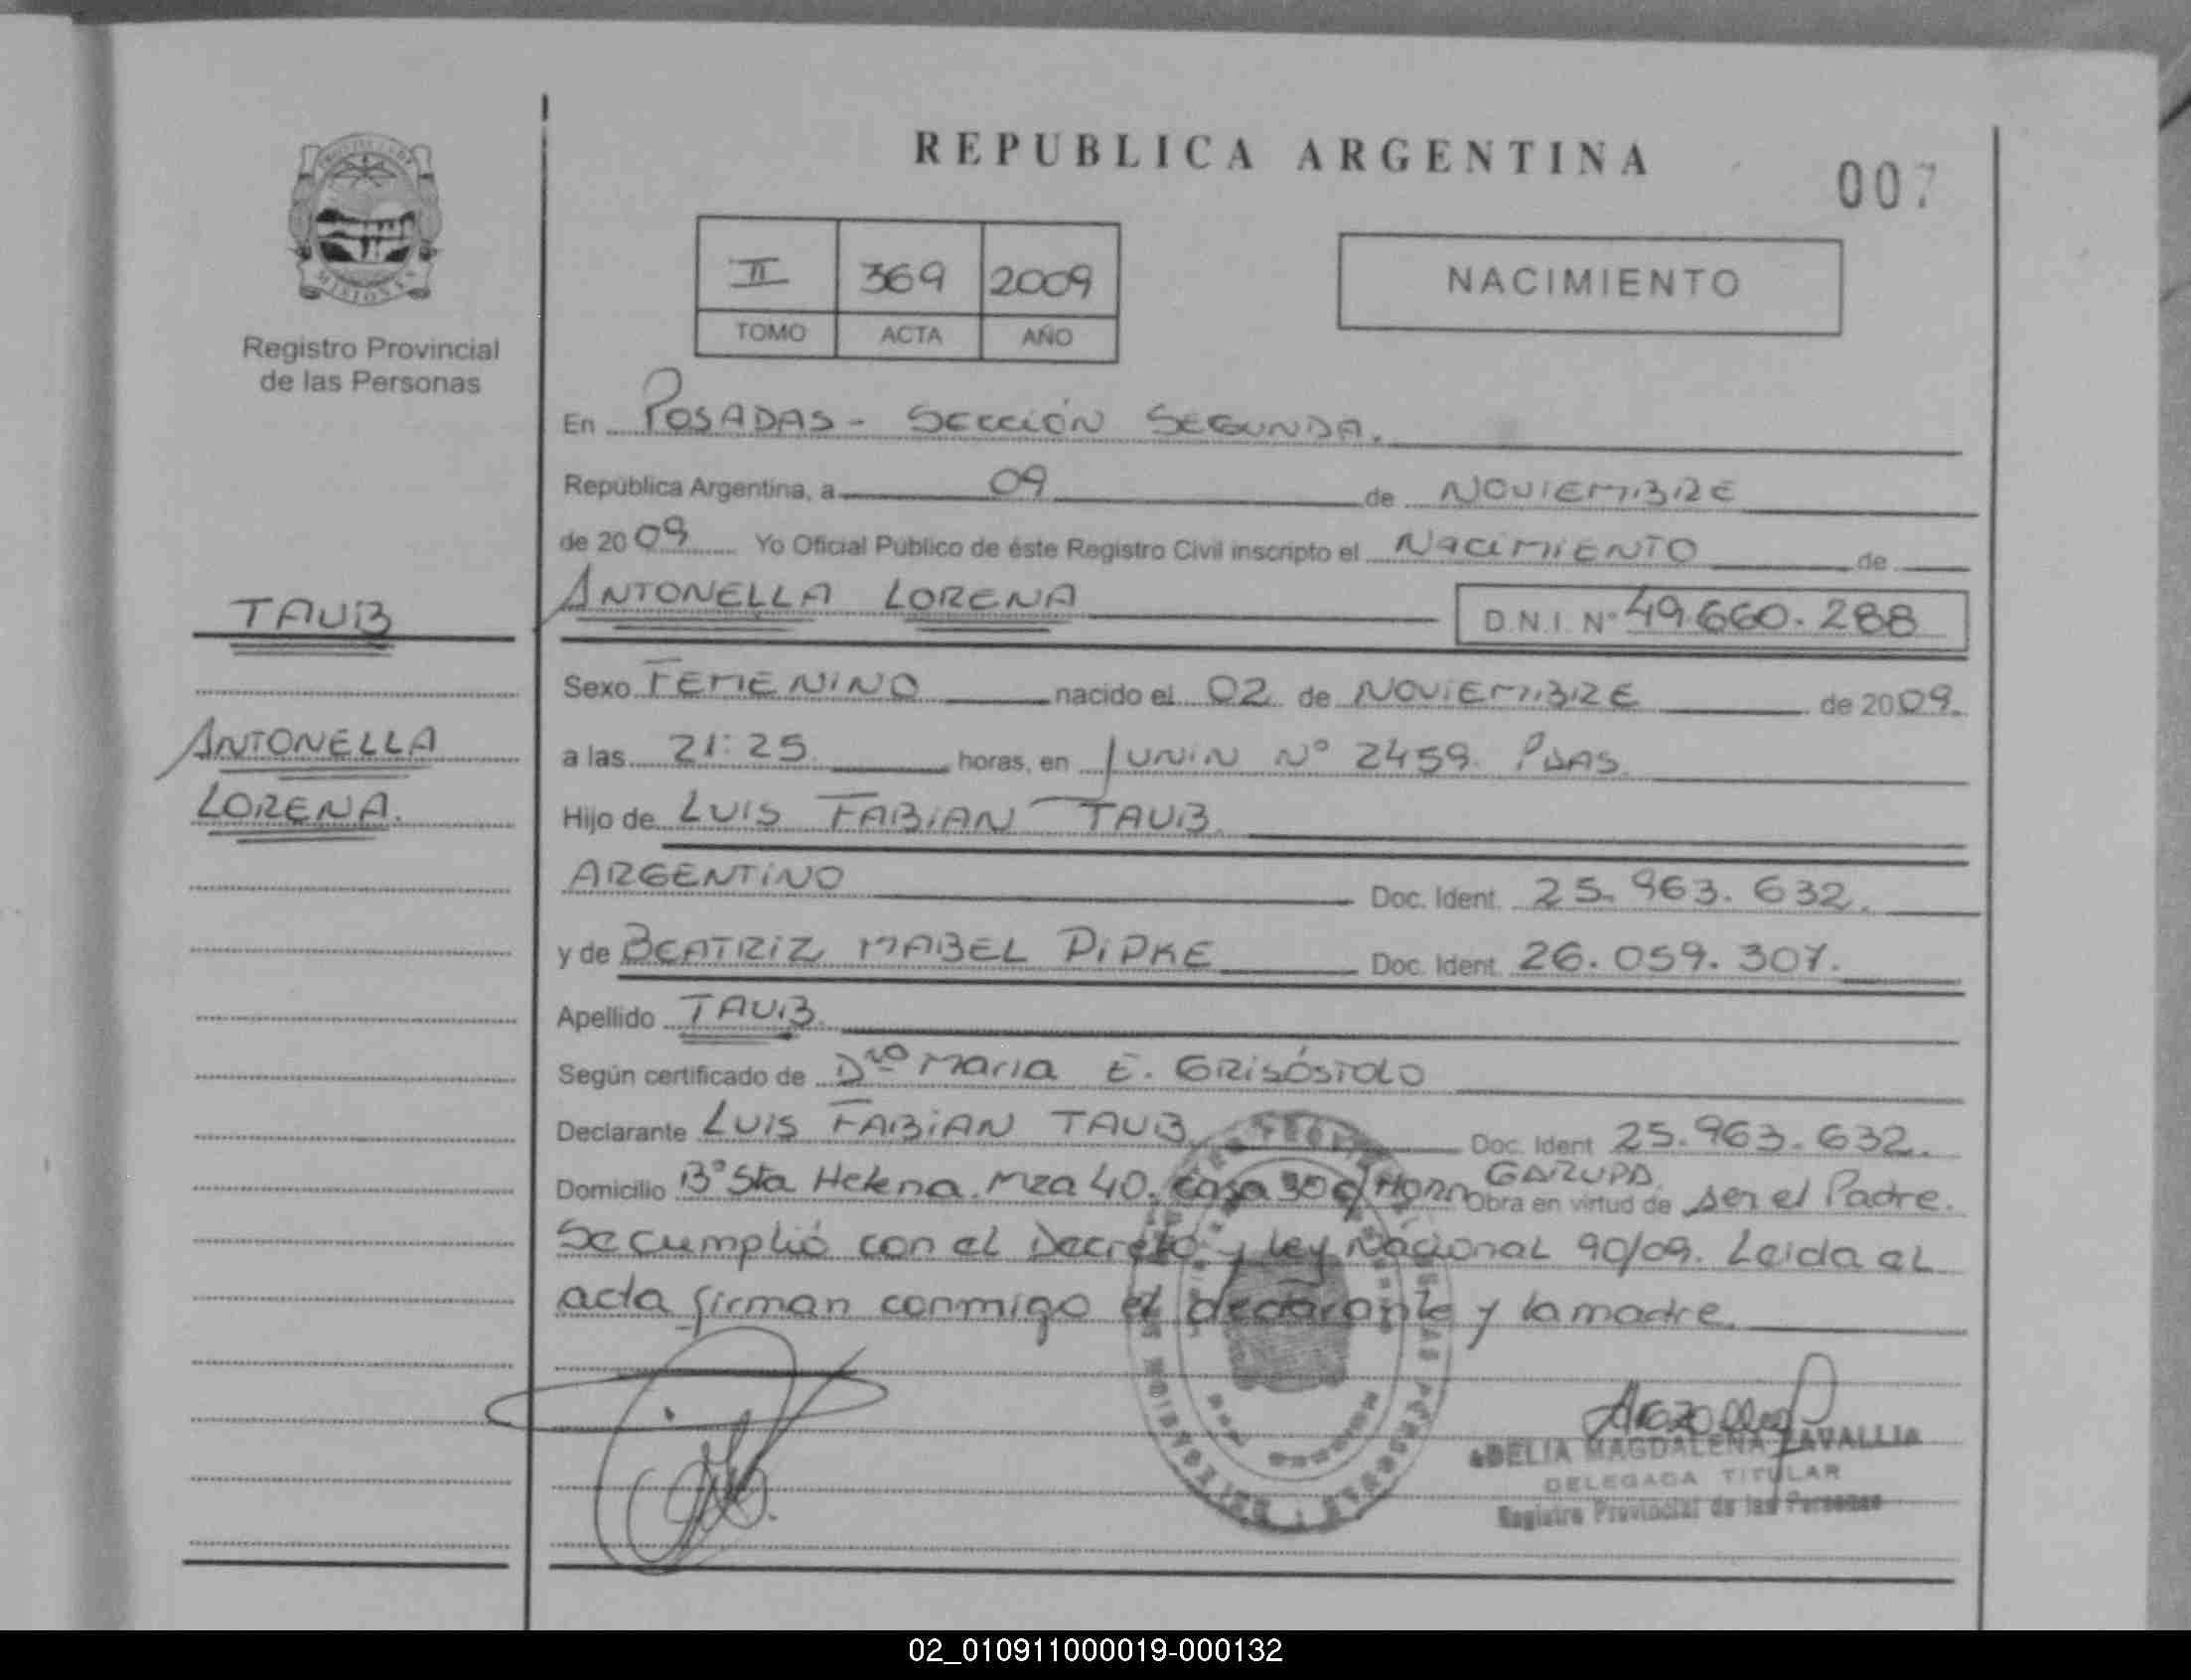 REPUBLICA ARGENTINA
007
II 369 2009
TOMO ACTA AÑO
NACIMIENTO
MISIONES
Registro Provincial
de las Personas
En POSADAS - SECCIÓN SEGUNDA.
República Argentina, a 09 de NOVIEMBRE
de 2009 Yo Oficial Público de éste Registro Civil inscripto el NaciMiENTO de
TAUB
ANTONELLA LORENA D.N.I. Nº 49.660.288
Sexo FEMENINO nacido el 02 de NOVIEMBRE de 2009.
ANTONELLA
a las 21:25 horas, en JUNIN Nº 2459. Pdas.
LORENA.
Hijo de LUIS FABIAN TAUB.
ARGENTINO Doc. Ident. 25.963.632.
y de BEATRIZ MABEL PIPKE Doc. Ident. 26.059.307.
Apellido TAUB.
Según certificado de Dra Maria E. GRISÓSTOLO
Declarante LUIS FABIAN TAUB Doc. Ident 25.963.632.
Domicilio Bº Sta Helena. Mza 40. Casa 30 GARUPA. Obra en virtud de ser el Padre.
Se cumplió con el Decreto y Ley Nacional 90/09. Leida el
acta firman conmigo el declarante y la madre.
DELIA MAGDALENA ZAVALLIA
DELEGADA TITULAR
Registro Provincial de las Personas
02_010911000019-000132